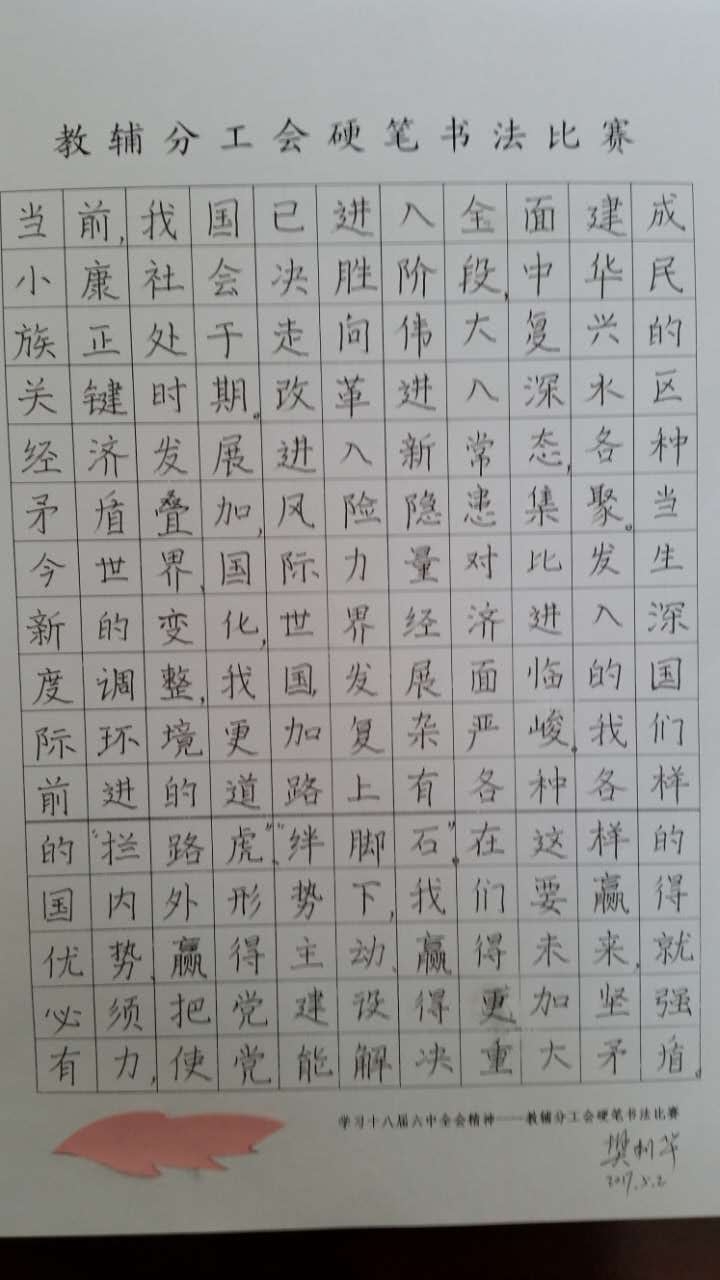 教辅分工会硬笔书法比赛
当前,我国已进入全面建成
小康社会决胜阶段,中华民
族正处于走向伟大复兴的
关键时期。改革进入深水区
经济发展进入新常态,各种
矛盾叠加,风险隐患集聚。当
今世界、国际力量对比发生
新的变化,世界经济进入深
度调整,我国,发展面临的国
际环境更加复杂严峻。我们
前进的道路上有各种各样
的“拦路虎”、“绊脚石”。在这样的
国内外形势下,我们要赢得
优势、赢得主动、赢得未来,就
必须把党建设得更加坚强
有力,使党能解决重大矛盾。
学习十八届六中全会精神——教辅分工会硬笔书法比赛
樊利华
2017.5.2